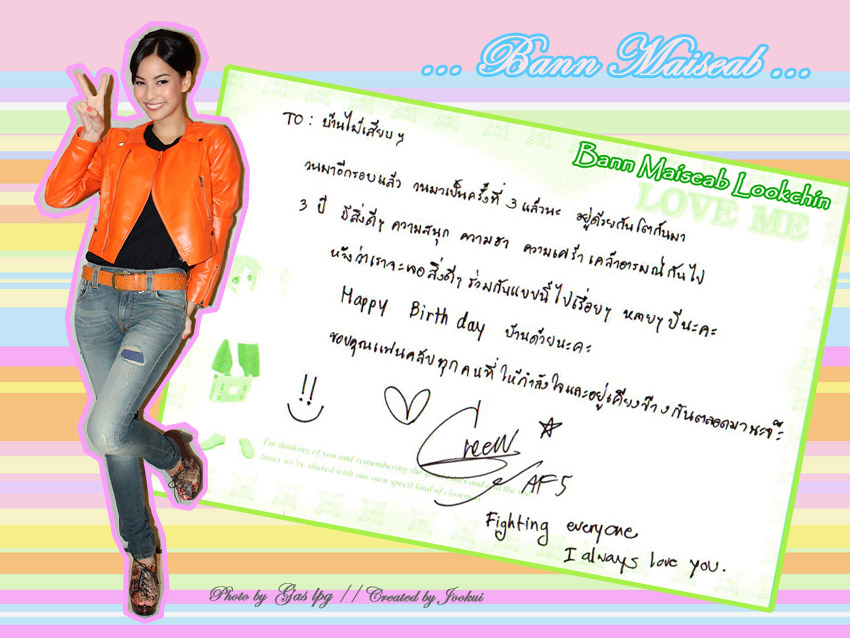 ... Bann Maiseab ...
Bann Maiseab Lookchin
LOVE ME
TO : บ้านไม้เสียบๆ
วนมาอีกรอบแล้ว วนมาเป็นครั้งที่ 3 แล้วนะ อยู่ด้วยกันโตกันมา
3 ปี มีสิ่งดีๆ ความสนุก ความฮา ความเศร้า เคล้าอารมณ์กันไป
หวังว่าเราจะเจอสิ่งดีๆ ร่วมกันแบบนี้ไปเรื่อยๆ หลายๆ ปีนะคะ
Happy Birth day บ้านด้วยนะคะ
ขอบคุณแฟนคลับทุกคนที่ให้กำลังใจและอยู่เคียงข้างกันตลอดมานะจ๊ะ
!!
Green
AF5
I'm thinking of you and remembering the
times we've shared with our own
Fighting everyone
I always love you.
Photo by Gas lpg // Created by Jookui